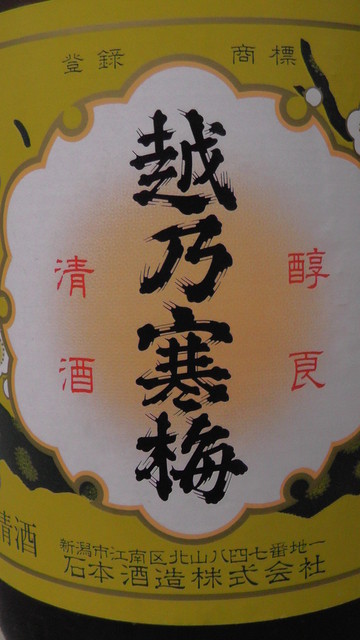 登録 商標
越乃寒梅
醇良
清酒
清酒
新潟市江南区北山八四七番地一
石本酒造株式会社